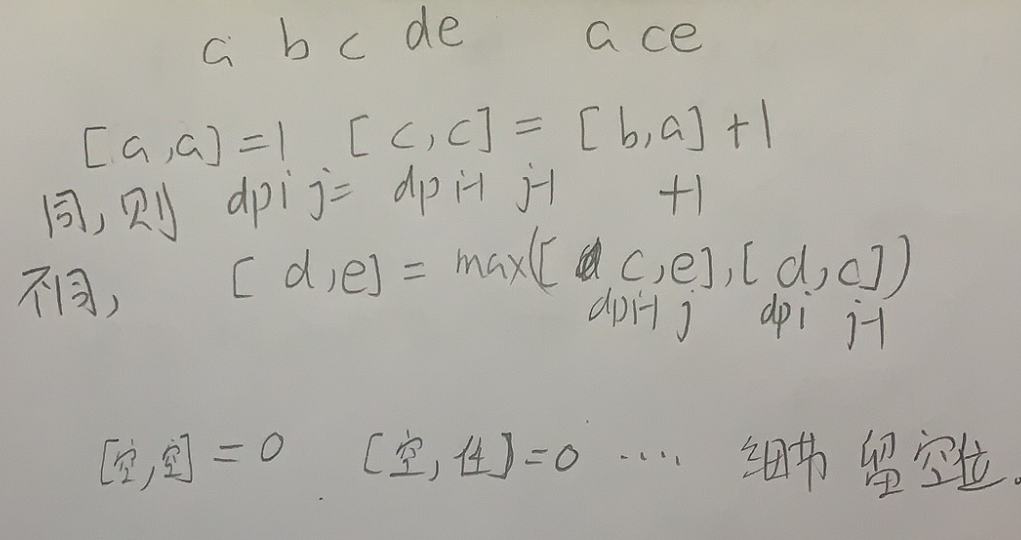 a b c de ace
[a,a]=1 [c,c]=[b,a]+1
同,则 dpi j= dpi-1 j-1 +1
不同, [d,e]=max([c,e],[d,c])
dpi-1 j dpi j-1
[空,空]=0 [空,任]=0 ····· 细节 留空位。